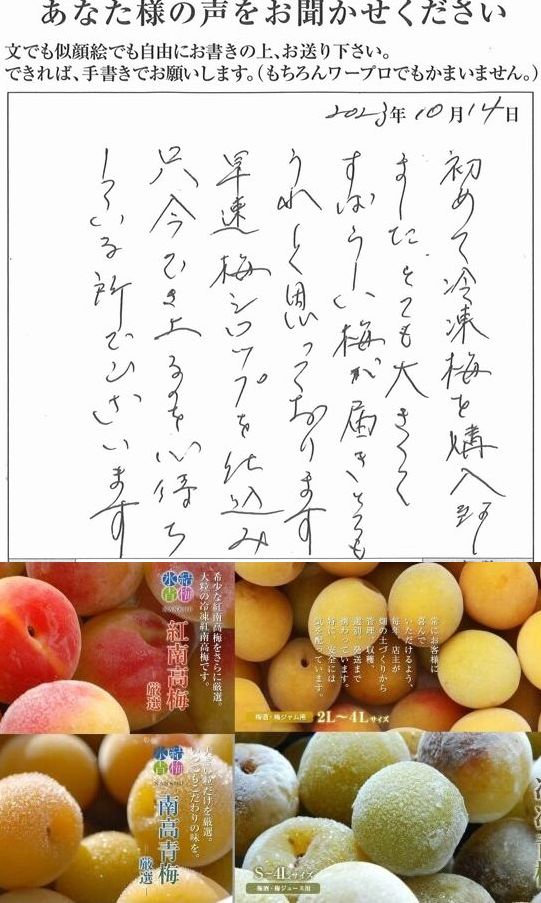 あなた様の声をお聞かせください
文でも似顔絵でも自由にお書きの上、お送り下さい。
できれば、手書きでお願いします。(もちろんワープロでもかまいません。)
2023年10月14日
初めて冷凍梅を購入致し
ました。とても大きくて
すばらしい梅が届きとても
うれしく思っております
早速梅シロップを仕込み
只今でき上るのを心待ち
している所でございます
希少な紅南高梅をさらに厳選。
大粒の冷凍紅南高梅です。
氷結
青梅
NANKOU
紅南高梅
―厳選―
常にお客様に
喜んで
いただけるよう、
毎年、店主が
畑の土づくりから
管理、収穫、
選別、発送まで
携わっています。
特に、安全には
気を配っています。
梅酒・梅ジャム用
2L〜4Lサイズ
こだわりの味を。
氷結
青梅
NANKOU
南高青梅
―厳選―
S〜4Lサイズ
梅酒・梅ジュース用